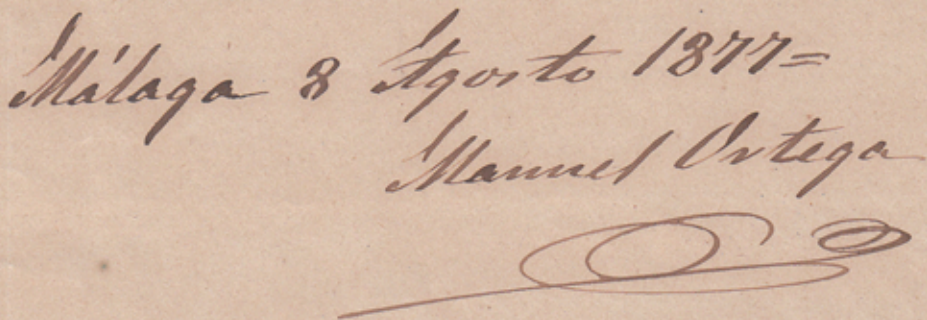 Málaga 8 Agosto 1877=
Manuel Ortega